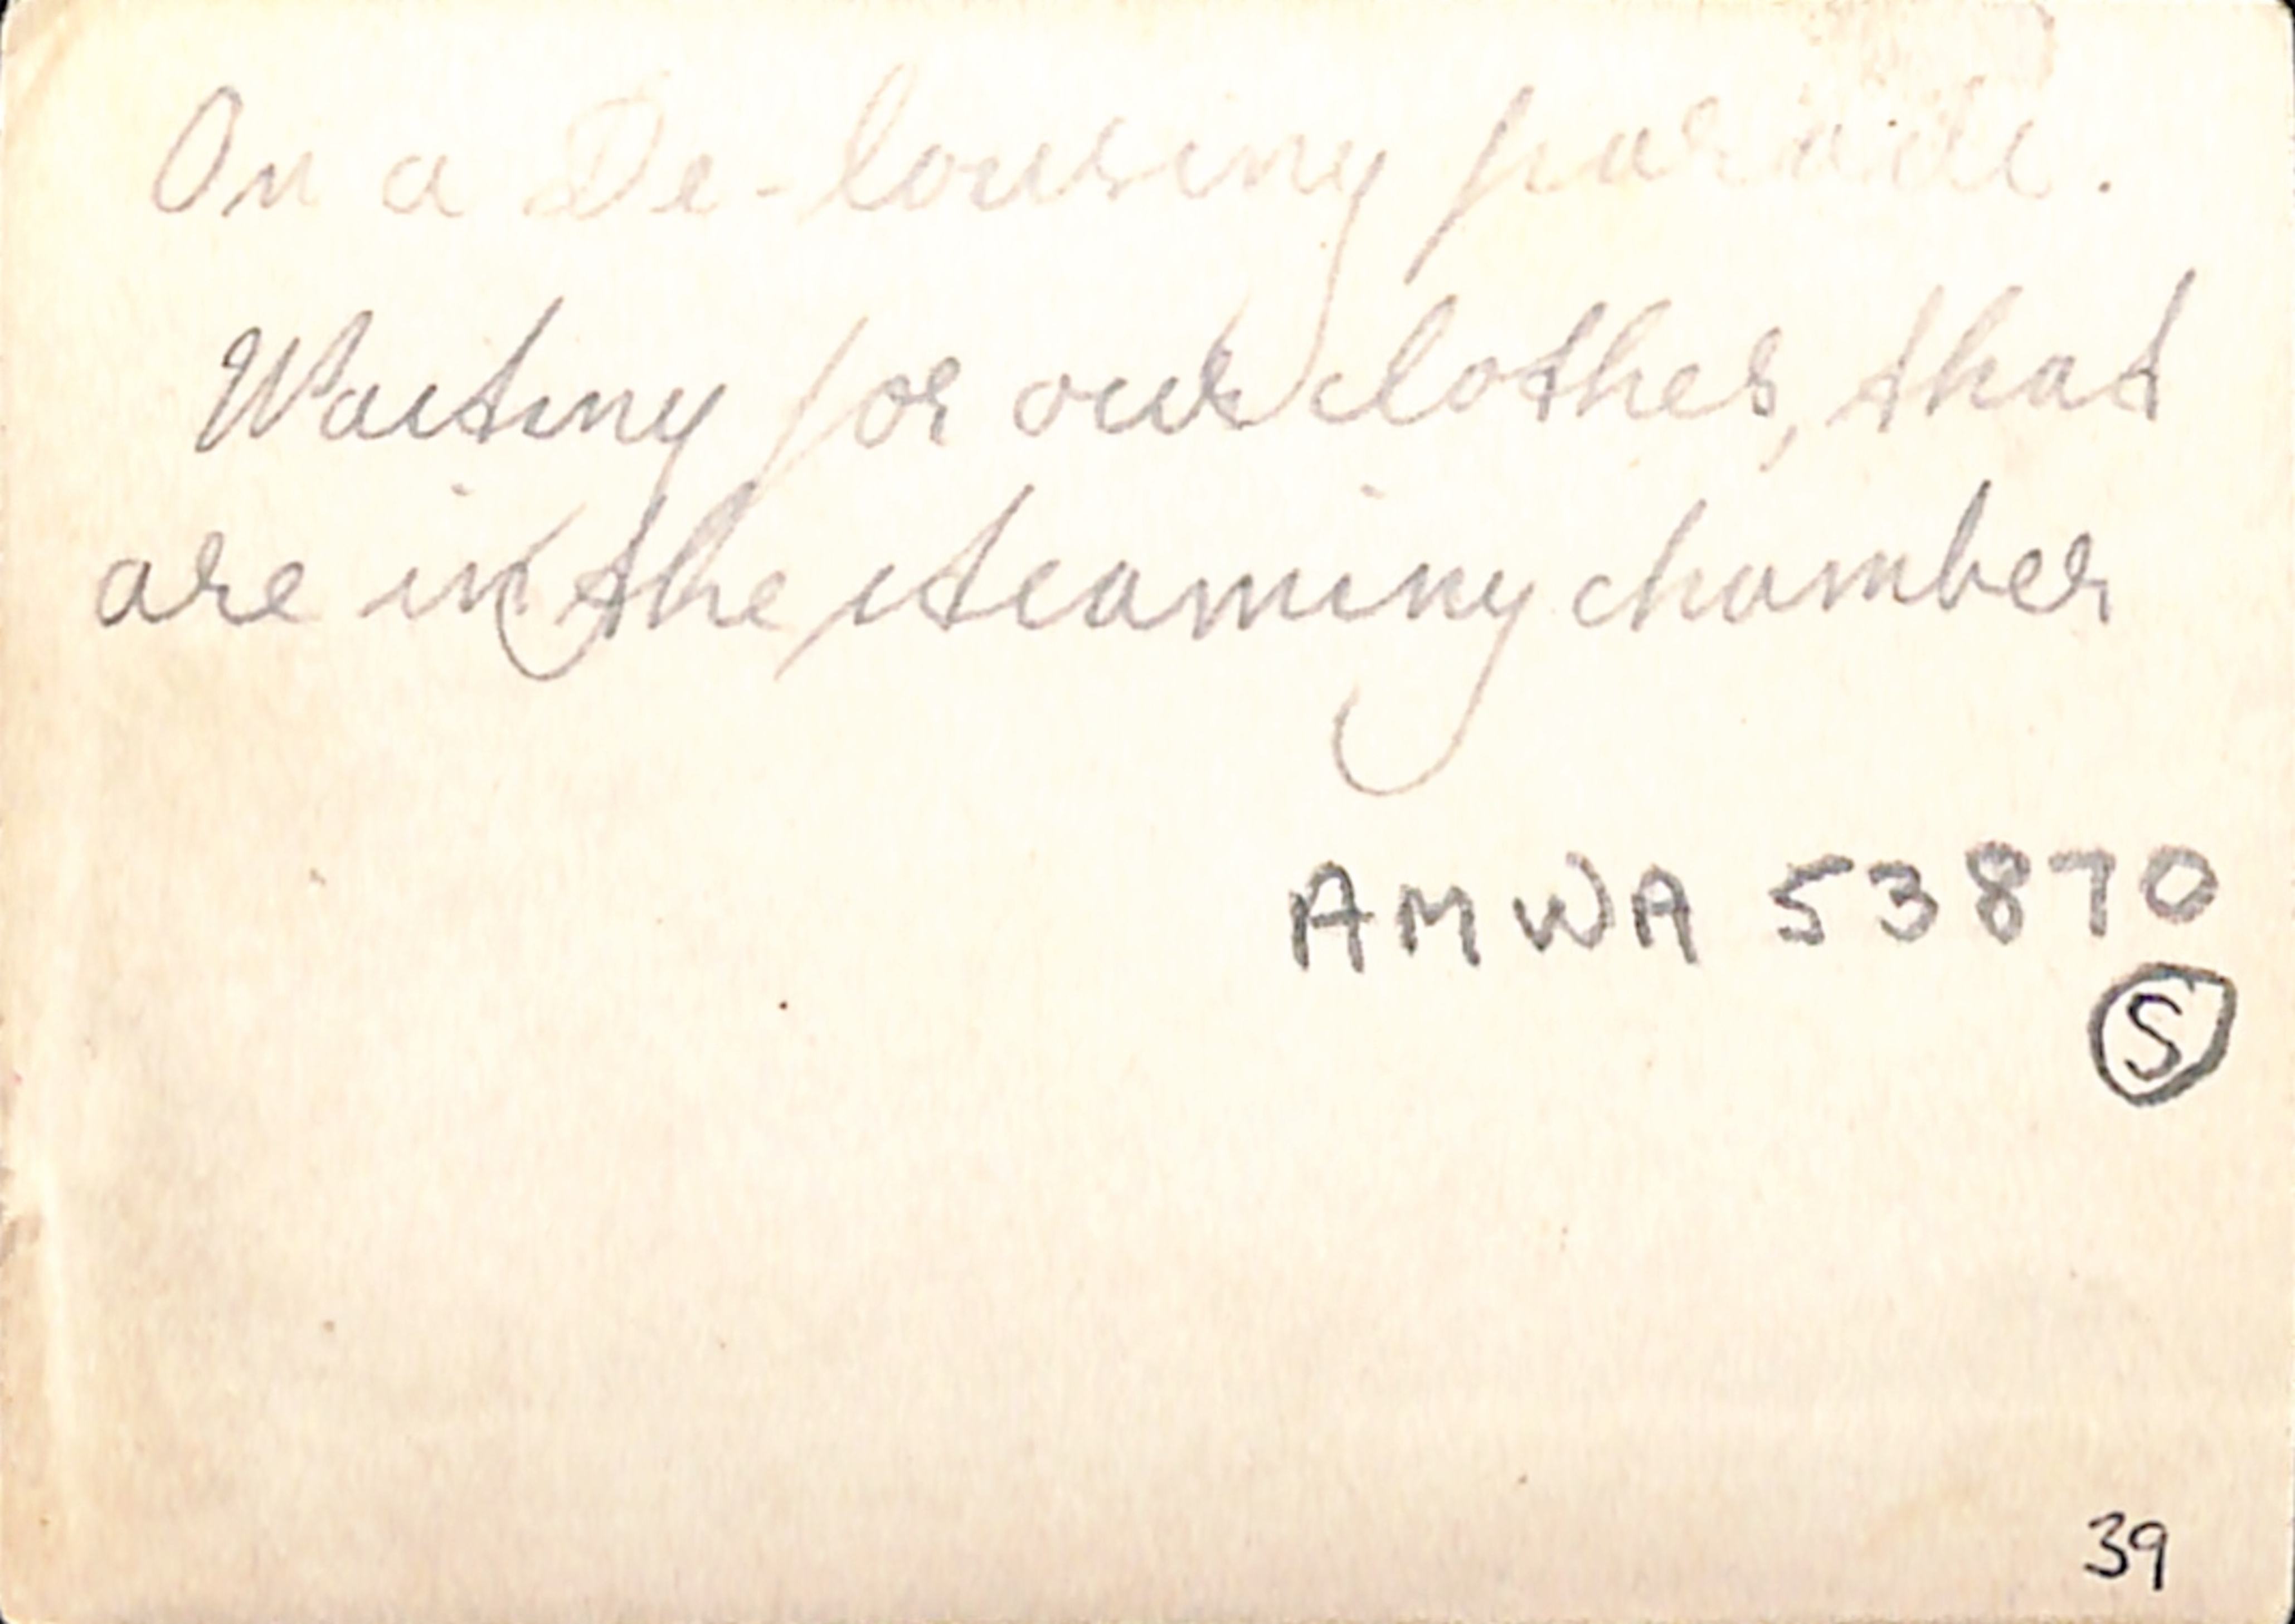 On a De-lousing parade.
Waiting for our clothes, that
are in the steaming chamber
AMWA 53870
S
39